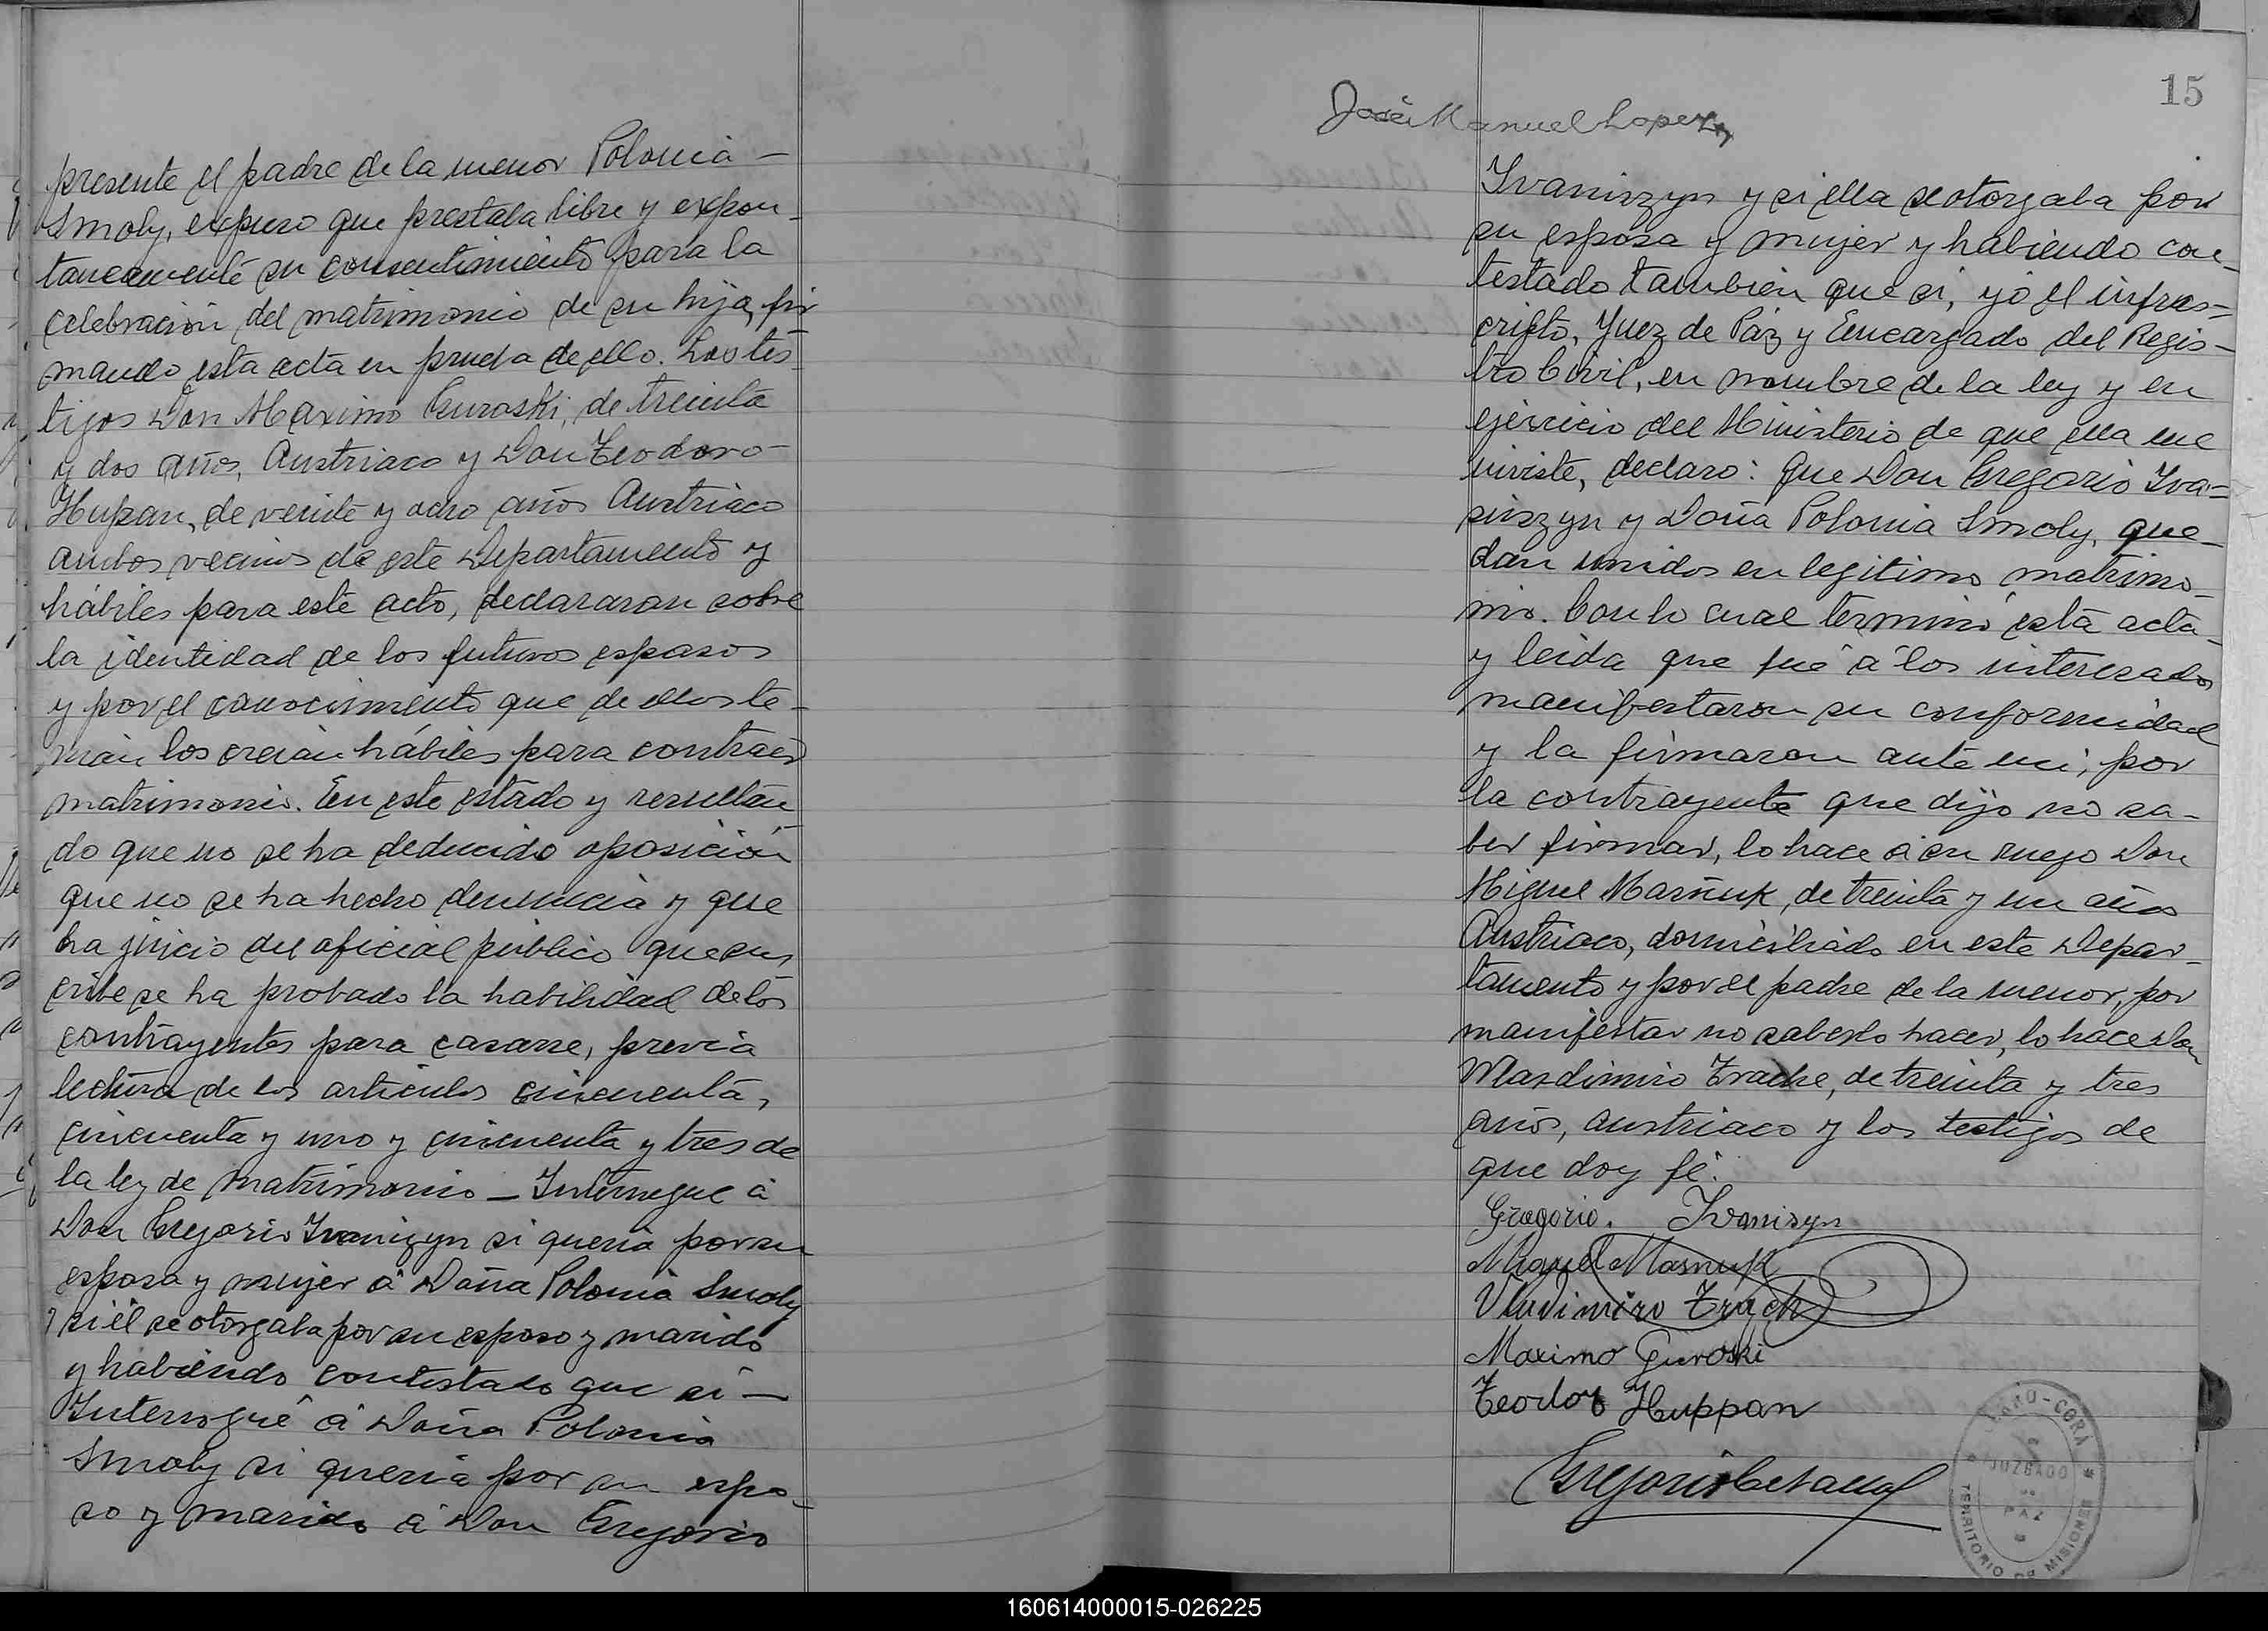 presente el padre de la menor Polonia -
Smoly, expuso que prestaba libre y expon-
taneamente su consentimiento para la
celebración del matrimonio de su hija, fir
mando esta acta en prueba de ello. Los tes-
tigos Don Maximo Guroski, de treinta
y dos años, Austriaco y Don Teodoro -
Hupan, de veinte y ocho años Austriaco
ambos vecinos de este Departamento y
hábiles para este acto, declararon sobre
la identidad de los futuros esposos
y por el conocimiento que de ellos te-
nian los creian hábiles para contraer
matrimonio. En este estado y resultan-
do que no se ha deducido oposición
que no se ha hecho denuncia y que
ha juicio del oficial público que sus
cribe se ha probado la habilidad de los
contrayentes para casarse, previa
lectura de los articulos cincuenta,
cincuenta y uno y cincuenta y tres de
la ley de matrimonio - Interrogué á
Don Gregorio Ivanizyn si queria por su
esposa y mujer á Doña Polonia Smoly
y si él se otorgaba por su esposo y marido
y habiendo contestado que si -
Interrogué á Doña Polonia
Smoly si queria por su espo-
so y marido á Don Gregorio
15
José Manuel Lopez
Ivaniszyn y si ella se otorgaba por
su esposa y mujer y habiendo con-
testado tambien que si, yó el infras-
cripto, Juez de Páz y Encargado del Regis-
tro Civil, en nombre de la ley y en
ejercicio del Ministerio de que ella me
inviste, declaro: que Don Gregorio Iva-
niszyn y Doña Polonia Smoly, que-
dan unidos en legitimo matrimo-
nio. Con lo cual terminó esta acta -
y leida que fué á los interesados
manifestaron su conformidad
y la firmaron ante mi, por
la contrayente que dijo no sa-
ber firmar, lo hace á su ruego Don
Miguel Masñuk, de treinta y un años
Austriaco, domiciliado en este Depar-
tamento y por el padre de la menor, por
manifestar no saberlo hacer, lo hace Don
Wlasdimiro Trache, de treinta y tres
años, austriaco y los testigos de
que doy fé.
Gregorio. Ivanisyn
Miguel Masnuk
Vladimiro Trach
Maximo Guroski
Teodor Huppan
Gregorio
CERRO-CORÁ
JUZGADO
DE
PAZ
TERRITORIO DE MISIONES
160614000015-026225